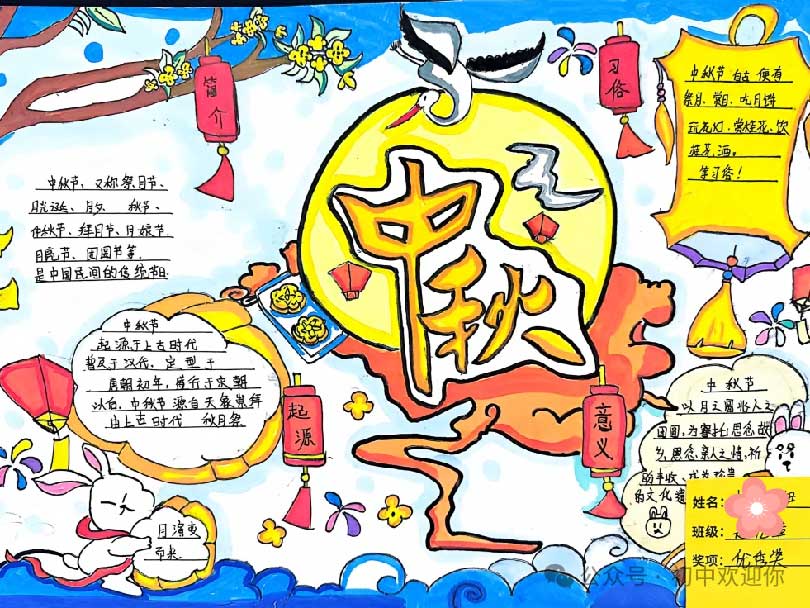 简介
习俗
中秋
起源
意义
中秋节自古便有
祭月、赏月、吃月饼
玩花灯、赏桂花、饮
桂花酒。
等习俗！
中秋节，又称祭月节、
秋节、
仲秋节、拜月节、月娘节
月亮节、团圆节等，
是中国民间的传统节日.
中秋节
起源于上古时代
普及于汉代，定型于
唐朝初年，盛行于宋朝
以后，中秋节源自天象崇拜
由上古时代 秋月祭
中秋节
以月之圆
团圆，为寄托思念故
乡，思念亲人之情，祈
盼丰收、
的文化遗
月满
姓名：
班级：
奖项：优秀奖
公众号·初中欢迎你